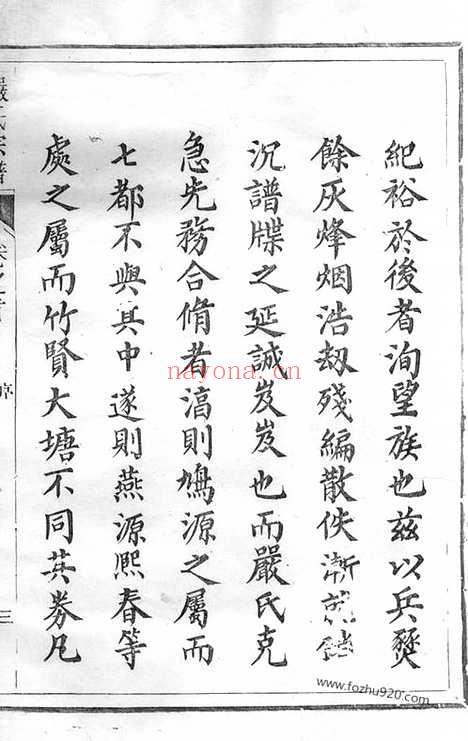 紀裕於後者洵望族也茲以兵燹
餘灰烽烟浩刼殘編散佚漸蕪
况譜牒之延誠岌岌也而嚴氏克
急先務合脩者淯則鳩源之屬而
七都不與其中遂則燕源熙春等
處之屬而竹賢大塘不同其券凡
嚴氏宗譜
序
三
nayona.cn
www.fozhu920.com